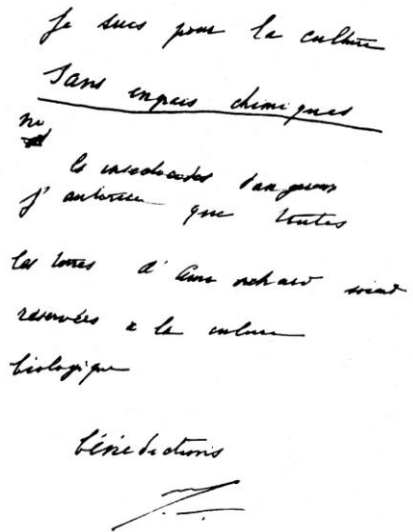 Je suis pour la culture
Sans engrais chimiques
ni
les insecticides dangereux
j'autorise que toutes
les terres d' soient
reservées a la culture
biologique
bénédictions